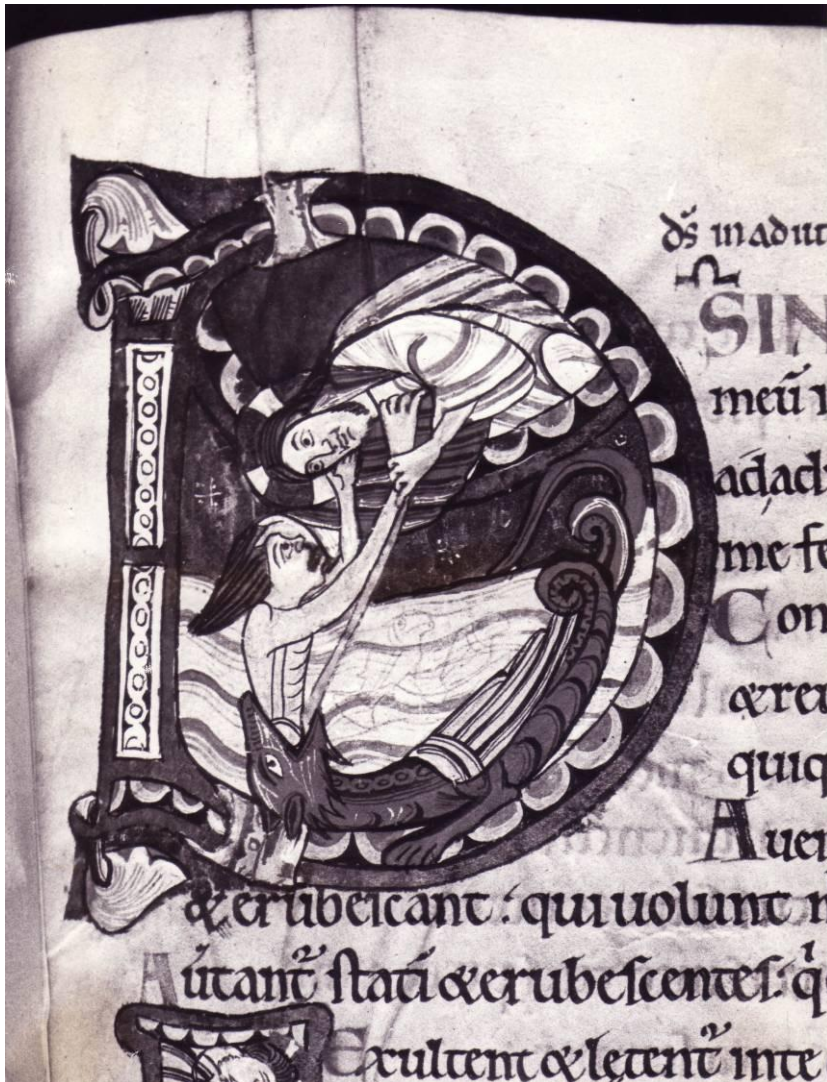 d̄s in adiut
D SIN
meū i
adadi
me fe
Con
& reu
qui q
Auer
& erubeſcant : qui uolunt m
Aūtant᷑ ſtatī & erubeſcenteſ: q̇
Exultent & lętent᷑ inte